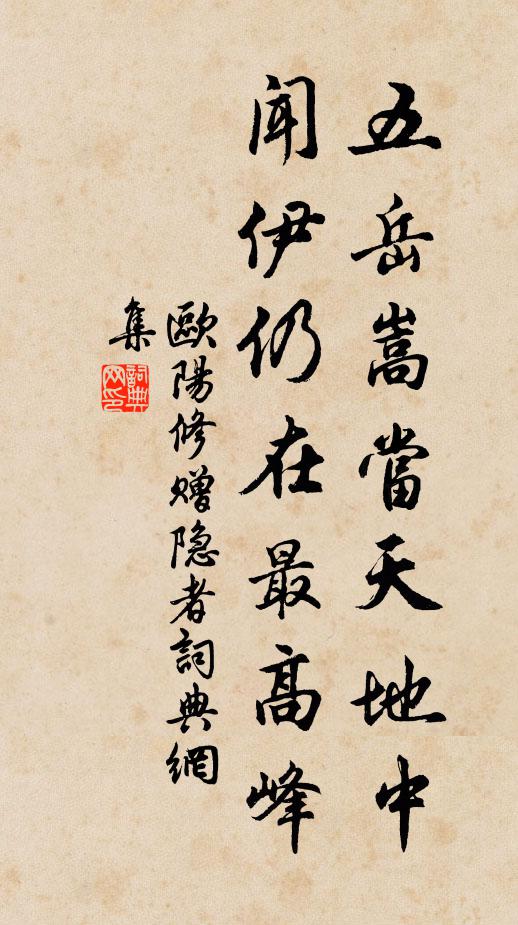 五岳嵩當天地中
聞伊仍在最高峰
歐陽修贈隐者詞典網
集
詞典
网印